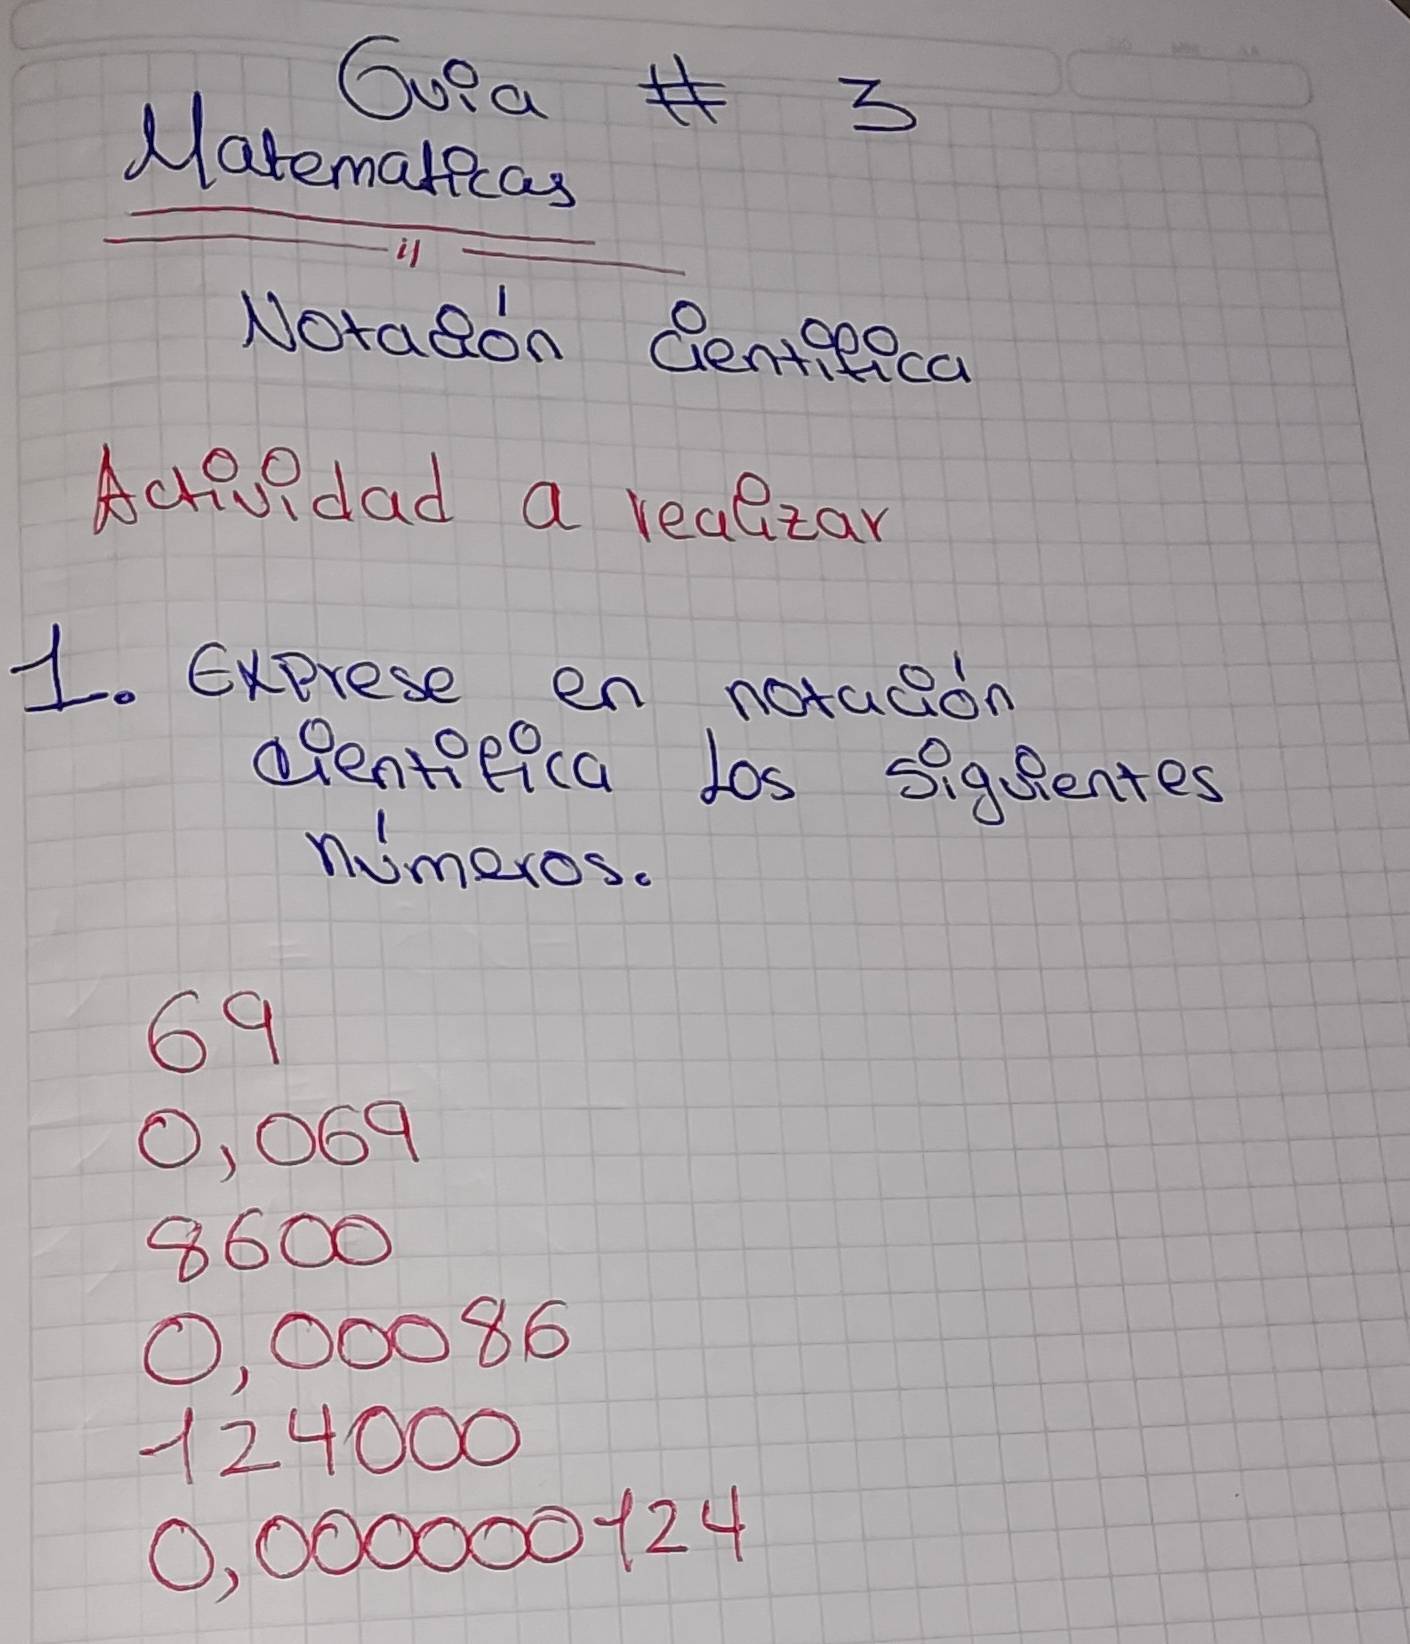 Guia # 3
Matematicas
Notación Cientifica
Actividad a realizar
1. Exprese en notación
cientifica los siguientes
números.
69
0,069
8600
0,00086
124000
0,000000124